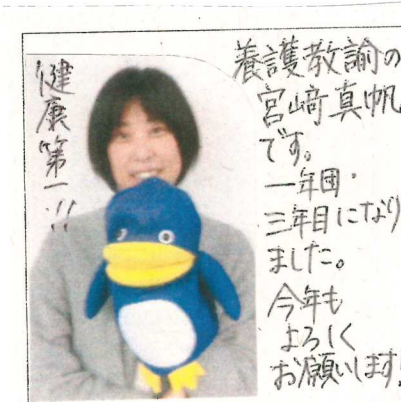 健康第一!!
養護教諭の
宮﨑真帆
です。
一年団・
三年目になり
ました。
今年も
よろしく
お願いします!